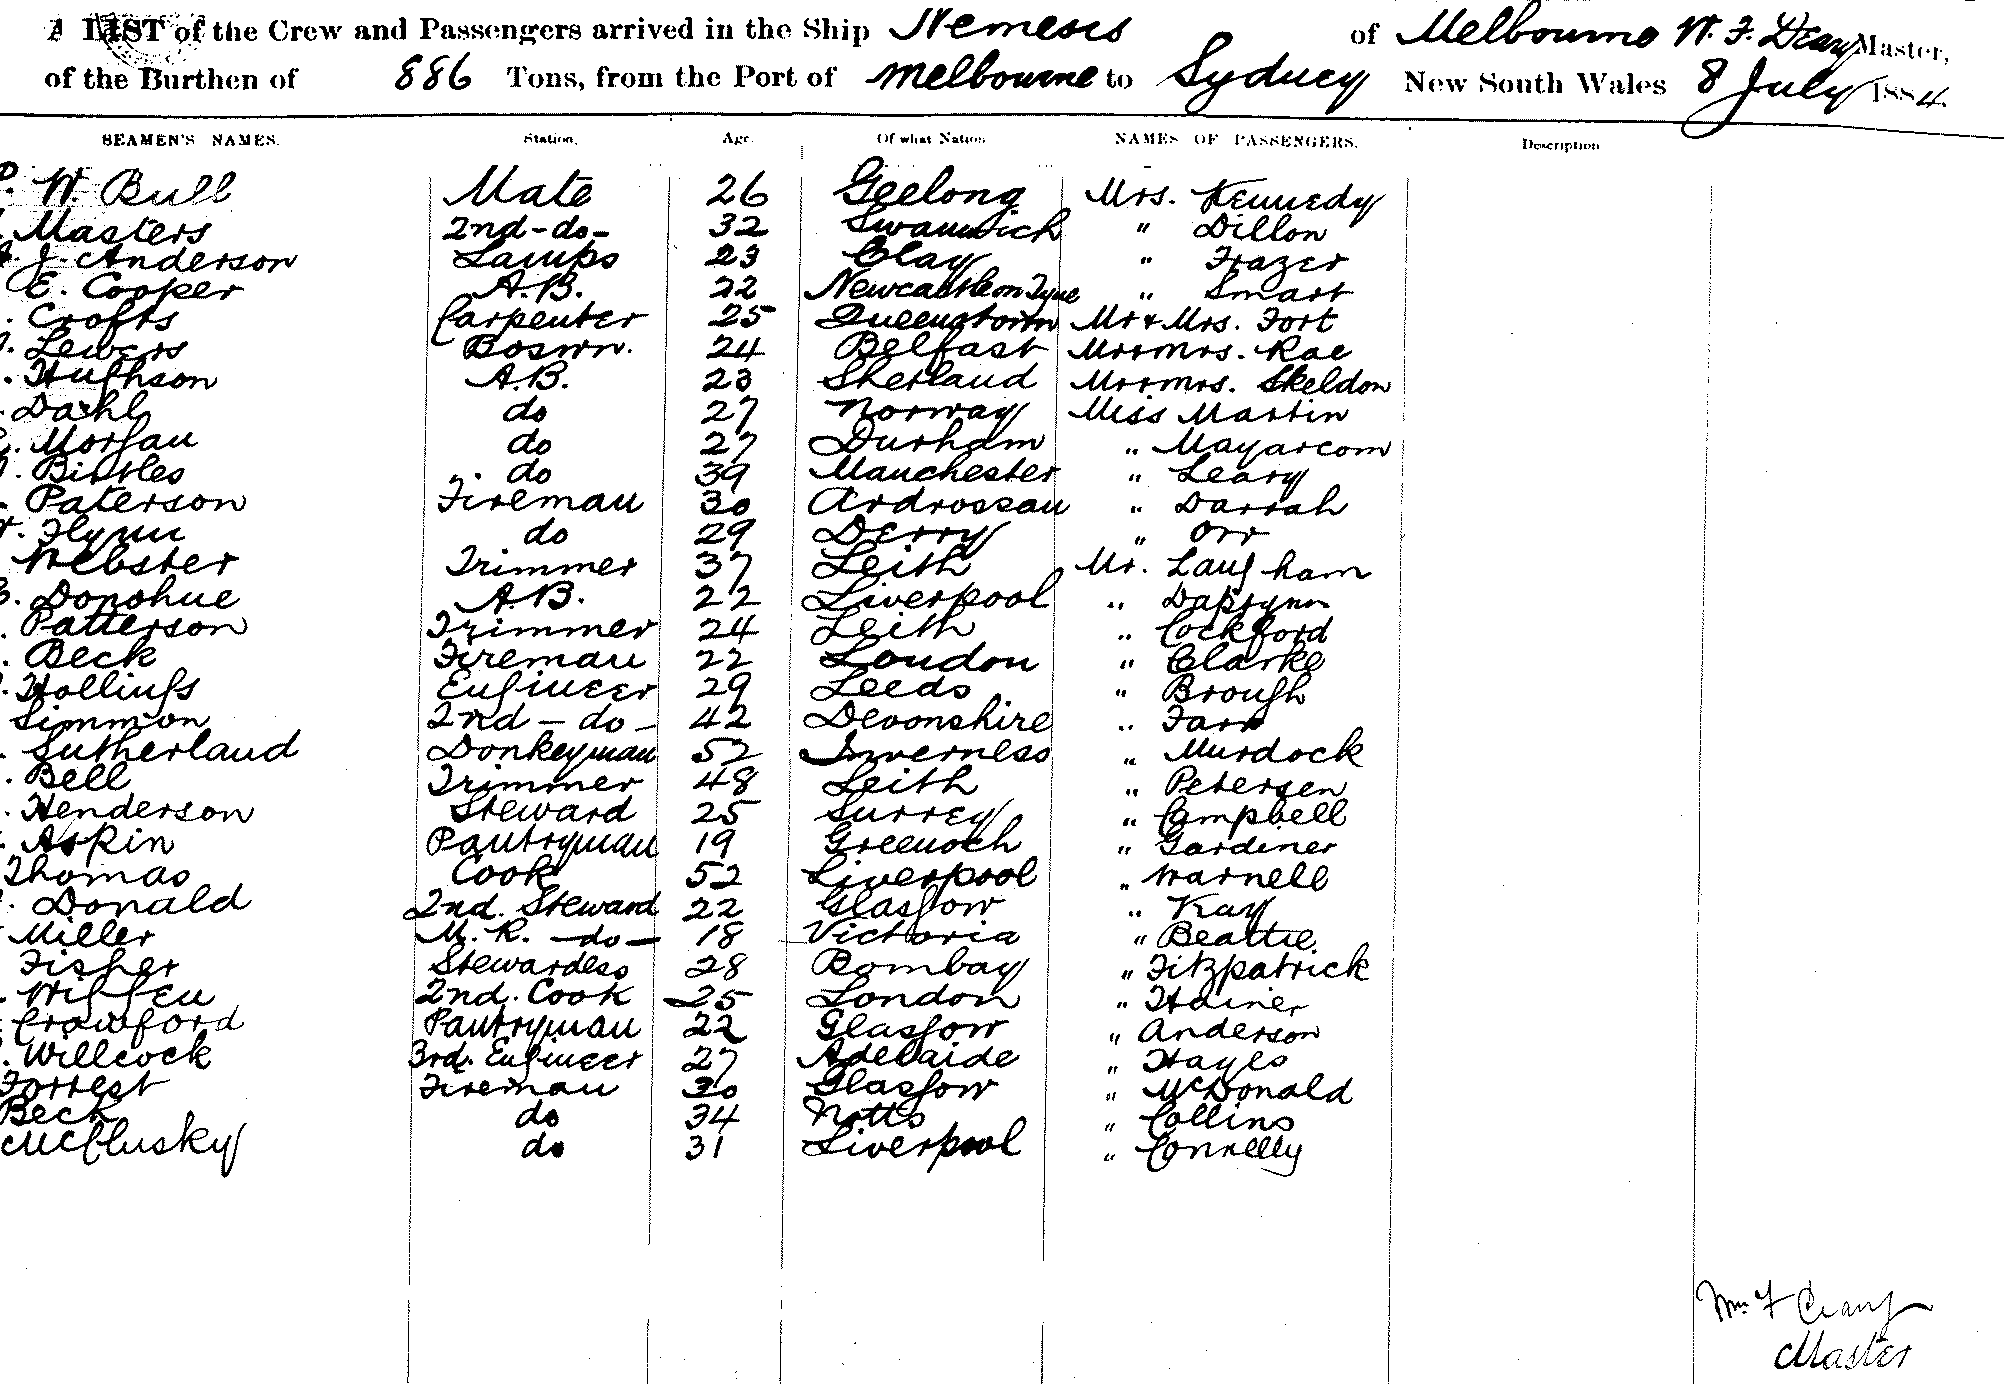 A LIST of the Crew and Passengers arrived in the Ship Nemesis of Melbourne W. F. Deary Master,
of the Burthen of 886 Tons, from the Port of Melbourne to Sydney New South Wales 8 July 1884.
SEAMEN'S NAMES. Station. Age. Of what Nation NAMES OF PASSENGERS. Description
W. Bull Mate 26 Geelong Mrs. Kennedy
Masters 2nd-do- 32 Swanwich " Dillon
J. Anderson Lamps 23 Clay " Frazer
E. Cooper A.B. 22 Newcastle on Tyne " Smart
Crofts Carpenter 25 Queenstown Mr & Mrs. Fort
Lewers Boswn. 24 Belfast Mr & Mrs. Rae
Hughson A.B. 23 Shetland Mr & Mrs. Skeldon
Dahl do 27 Norway Miss Martin
Morgan do 27 Durham " Mayarcom
Birkles do 39 Manchester " Leary
Paterson Fireman 30 Ardrossan " Darrah
Flynn do 29 Derry " Orr
Webster Trimmer 37 Leith Mr. Langham
Donohue A.B. 22 Liverpool "
Patterson Trimmer 24 Leith " Cockford
Beck Fireman 22 London " Clarke
Hollings Engineer 29 Leeds " Brough
Simmon 2nd-do- 42 Devonshire " Farr
Sutherland Donkeyman 52 Inverness " Murdock
Bell Trimmer 48 Leith " Petersen
Henderson Steward 25 Surrey " Campbell
Askin Pantryman 19 Greenock " Gardiner
Thomas Cook 52 Liverpool " Warnell
Donald 2nd. Steward 22 Glasgow " Kay
Miller M.R. -do- 18 Victoria " Beattie
Fisher Stewardess 28 Bombay " Fitzpatrick
Wiffen 2nd. Cook 25 London " Hainer
Crawford Pantryman 22 Glasgow " Anderson
Willcock 3rd. Engineer 27 Adelaide " Hayes
Forrest Fireman 30 Glasgow " McDonald
Beck do 34 Notts " Collins
McClusky do 31 Liverpool " Connelly
Wm F
Master